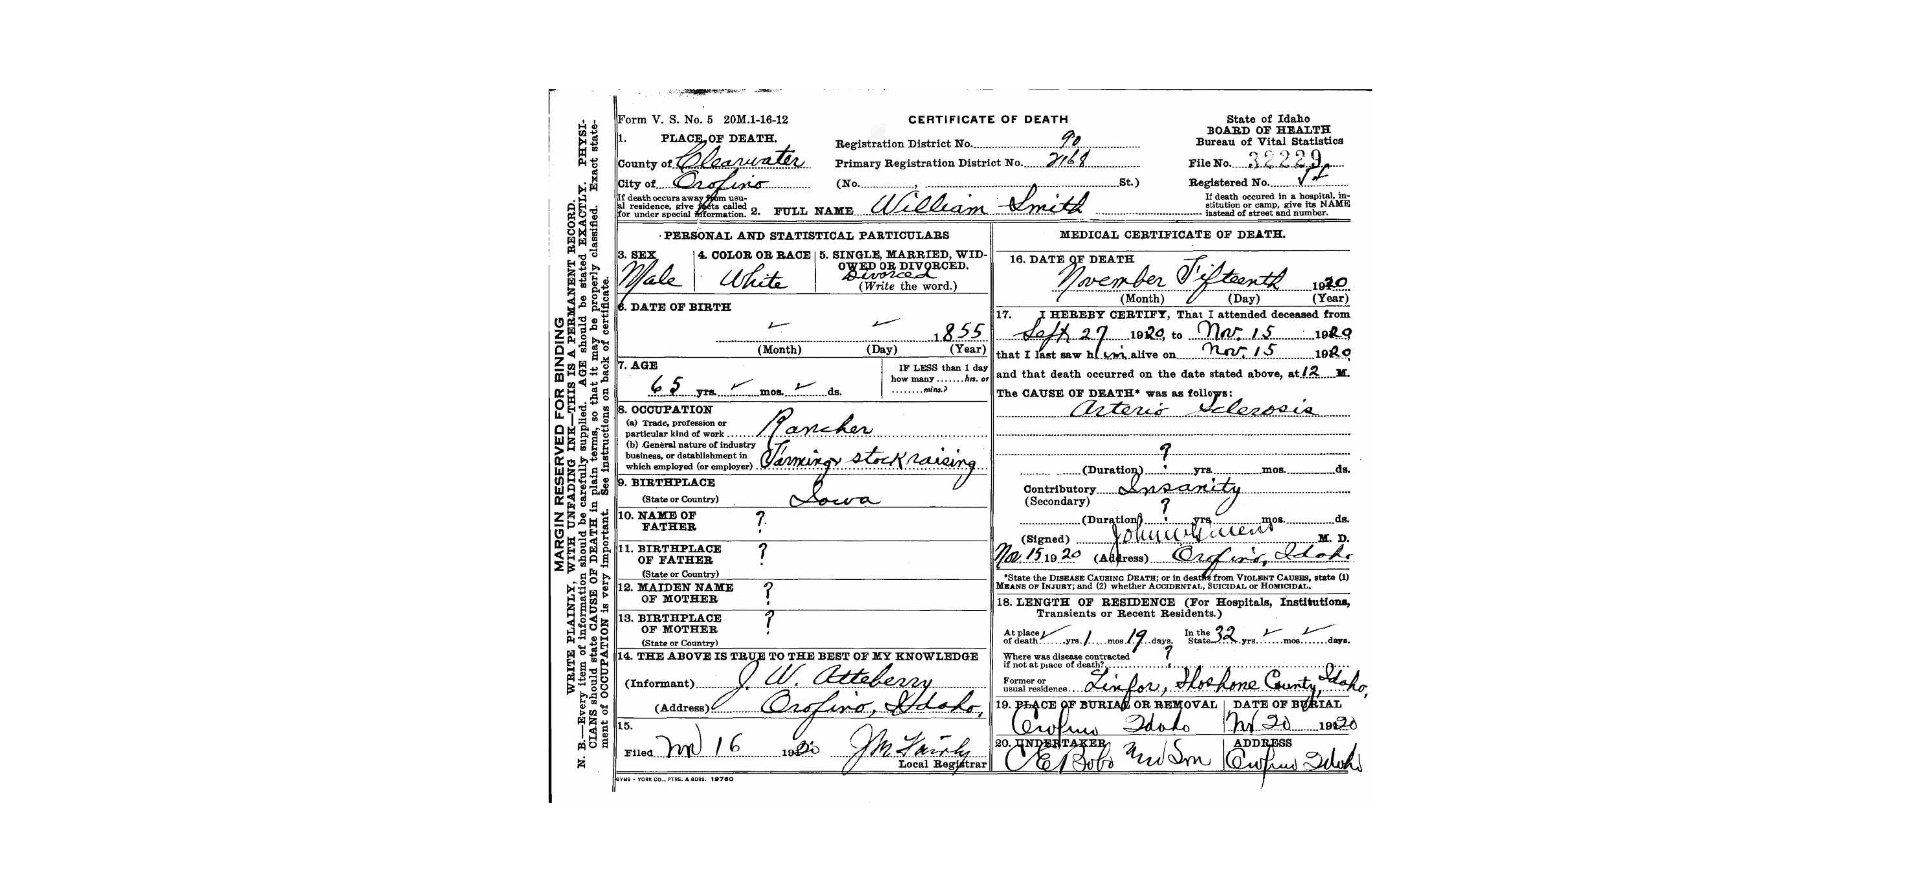 Form V. S. No. 5 20M.1-16-12
CERTIFICATE OF DEATH
State of Idaho
BOARD OF HEALTH
Bureau of Vital Statistics
1. PLACE OF DEATH.
County of Clearwater
City of Orofino
If death occurs away from usu-
al residence, give facts called
for under special information.
Registration District No. 90
Primary Registration District No. 2168
(No. , St.)
File No. 32229
Registered No.
If death occured in a hospital, in-
stitution or camp, give its NAME
instead of street and number.
2. FULL NAME William Smith
PERSONAL AND STATISTICAL PARTICULARS
3. SEX
Male
4. COLOR OR RACE
White
5. SINGLE, MARRIED, WID-
OWED OR DIVORCED.
Divorced
(Write the word.)
6. DATE OF BIRTH
✓ ✓ 1855
(Month) (Day) (Year)
7. AGE
65 yrs. ✓ mos. ✓ ds.
IF LESS than 1 day
how many ....... hrs. or
........ mins.?
8. OCCUPATION
(a) Trade, profession or
particular kind of work Rancher
(b) General nature of industry
business, or datablishment in
which employed (or employer) Farming & stock raising
9. BIRTHPLACE
(State or Country) Iowa
10. NAME OF
FATHER ?
11. BIRTHPLACE
OF FATHER ?
(State or Country)
12. MAIDEN NAME
OF MOTHER ?
13. BIRTHPLACE
OF MOTHER ?
(State or Country)
14. THE ABOVE IS TRUE TO THE BEST OF MY KNOWLEDGE
(Informant) J. W. Atteberry
(Address) Orofino, Idaho,
15.
Filed Nov 16 1920 J M Fairly
Local Registrar
MEDICAL CERTIFICATE OF DEATH.
16. DATE OF DEATH
November Fifteenth 1920
(Month) (Day) (Year)
17. I HEREBY CERTIFY, That I attended deceased from
Sept 27 1920, to Nov. 15 1920
that I last saw him alive on Nov. 15 1920,
and that death occurred on the date stated above, at 12 M.
The CAUSE OF DEATH* was as follows:
Arterio Sclerosis
(Duration) ? yrs. mos. ds.
Contributory Insanity
(Secondary)
(Duration) ? yrs. mos. ds.
(Signed) John W Givens M. D.
Nov 15 1920 (Address) Orofino, Idaho
*State the DISEASE CAUSING DEATH; or in deaths from VIOLENT CAUSES, state (1)
MEANS OF INJURY; and (2) whether ACCIDENTAL, SUICIDAL or HOMICIDAL.
18. LENGTH OF RESIDENCE (For Hospitals, Institutions,
Transients or Recent Residents.)
At place
of death ✓ yrs. 1 mos. 19 days. In the
State 32 yrs. ✓ mos. ✓ days.
Where was disease contracted
if not at place of death? ?
Former or
usual residence Shoshone County, Idaho,
19. PLACE OF BURIAL OR REMOVAL
Orofino Idaho
DATE OF BURIAL
Nov 20 1920
20. UNDERTAKER
C E Bobo and Son
ADDRESS
Orofino Idaho
GYMS - YORK CO., PTRS. & BDRS. 19760
MARGIN RESERVED FOR BINDING
WRITE PLAINLY, WITH UNFADING INK—THIS IS A PERMANENT RECORD.
N. B.—Every item of information should be carefully supplied. AGE should be stated EXACTLY. PHYSI-
CIANS should state CAUSE OF DEATH in plain terms, so that it may be properly classified. Exact state-
ment of OCCUPATION is very important. See instructions on back of certificate.